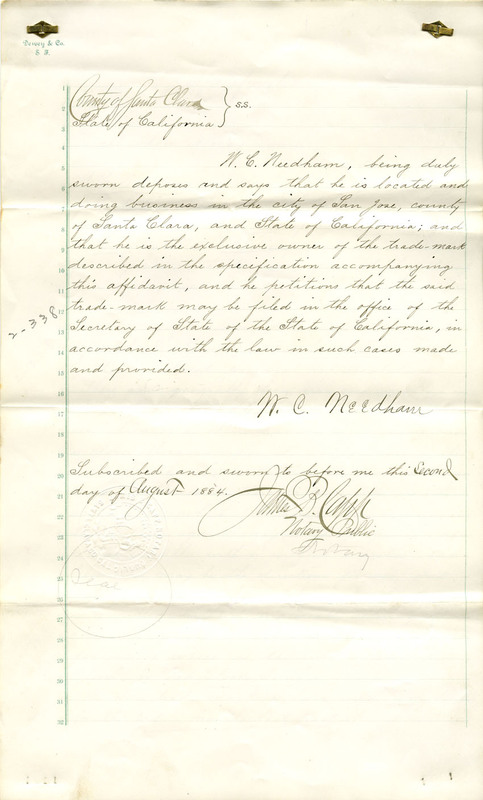 Dewey & Co.
S. F.
County of Santa Clara } S.S.
State of California
W. C. Needham, being duly
sworn deposes and says that he is located and
doing business in the city of San Jose, county
of Santa Clara, and State of California; and
that he is the exclusive owner of the trade-mark
described in the specification accompanying
this affidavit, and he petitions that the said
trade-mark may be filed in the office of the
Secretary of State of the State of California, in
accordance with the law in such cases made
and provided.
2-338
W. C. Needham
Subscribed and sworn to before me this Second
day of August 1884.
James B. Capp
Notary Public
Notary
Seal
1
2
3
4
5
6
7
8
9
10
11
12
13
14
15
16
17
18
19
20
21
22
23
24
25
26
27
28
29
30
31
32